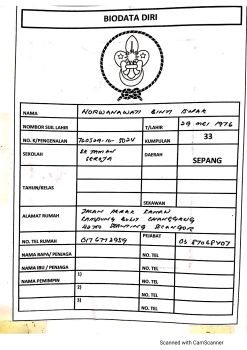 BIODATA DIRI
NAMA NORWANAWATI BINTI OMAR
NOMBOR SIJIL LAHIR T/LAHIR 29 MEI 1976
NO. K/PENGENALAN 760529-10-5024 KUMPULAN 33
SEKOLAH SK TAMAN SEROJA DAERAH SEPANG
TAHUN/KELAS
SEKAWAN
ALAMAT RUMAH JALAN
42700 BANTING SELANGOR
PEJABAT
NO. TEL RUMAH 0176773959 03 87068407
NAMA BAPA/ PENJAGA NO. TEL
NAMA IBU / PENJAGA 1) NO. TEL
NAMA PEMIMPIN 2) NO. TEL
3) NO. TEL
Scanned with CamScanner